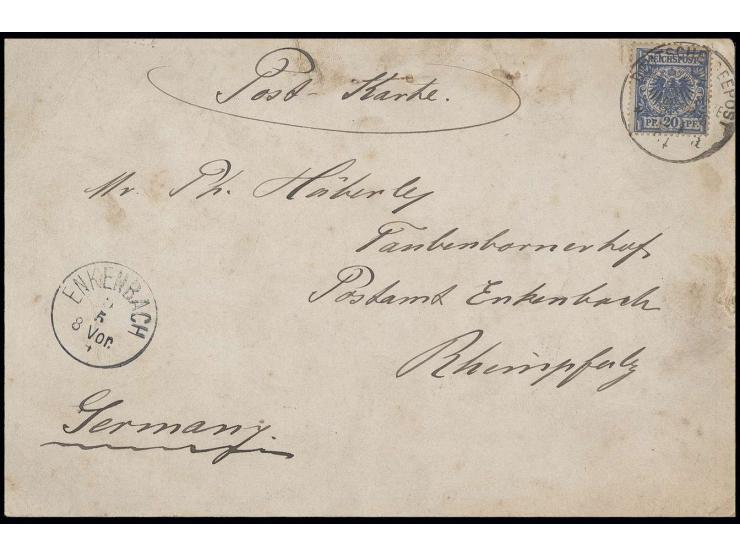 Post-Karte.
REICHSPOST
PF. 20 PF.
DEUTSCHE SEEPOST
Mr. Ph. Häberle
Taubenbornerhof
Postamt Enkenbach
Rheinpfalz
ENKENBACH
5
8 Vor.
Germany.